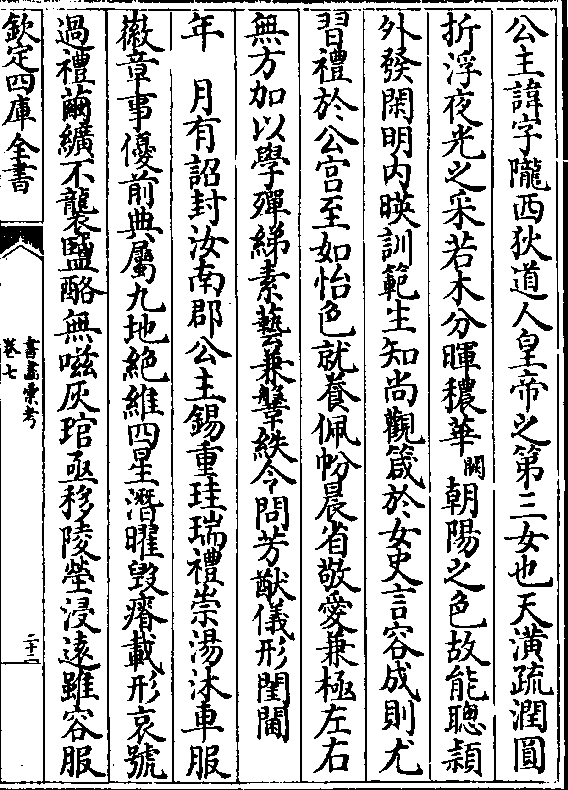 公主諱字隴西狄道人皇帝之第三女也天潢疏潤圓
折浮夜光之采若木分暉穠華闕朝陽之色故能聰穎
外發閑明内暎訓範生知尚觀箴於女史言容成則尤
習禮於公宫至如怡色就養佩帉晨省敬愛兼極左右
無方加以學殫綈素藝兼鞶紩令問芳猷儀形閨閫
年　月有詔封汝南郡公主錫重珪瑞禮崇湯沐車服
徽章事優前典屬九地絶維四星潛曜毁瘠載形哀號
過禮繭纊不襲鹽酪無嗞灰琯亟移陵塋浸遠雖容服
欽定四庫全書
書畫彚考
卷七
二十二